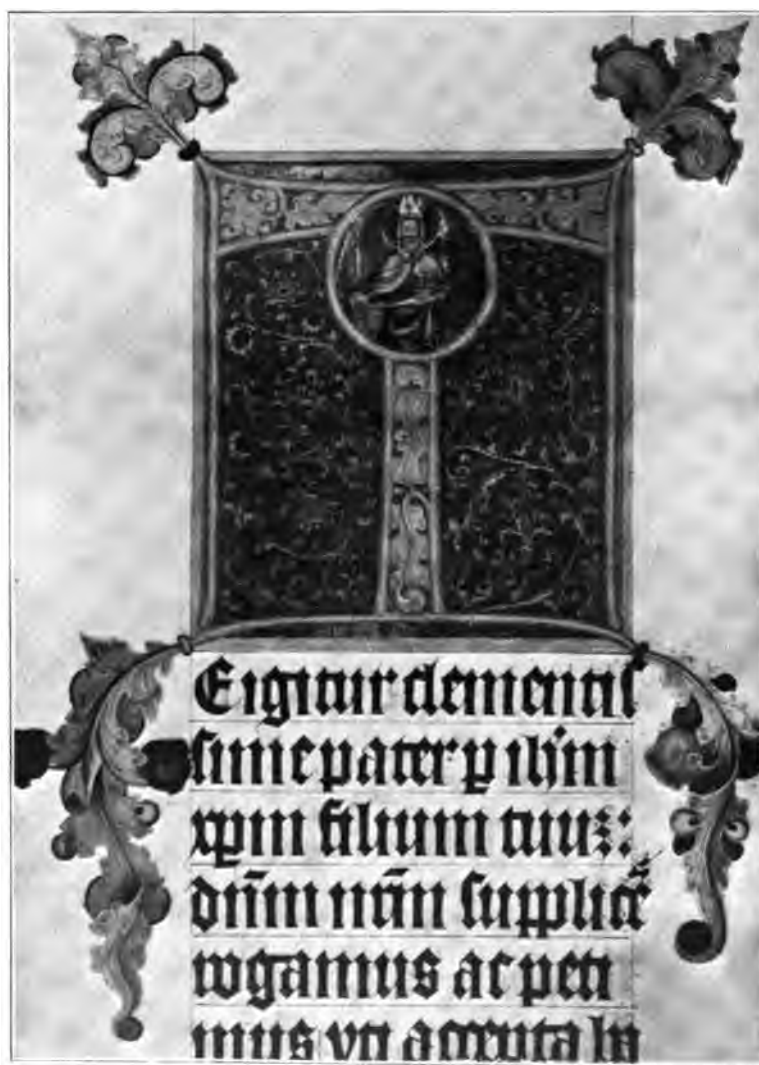 T
Eigitur clementis
sime pater p ihm
xpm filium tuu::
dn̄m nr̄m supplicē
rogamus ac peti
mus vti accepta ha